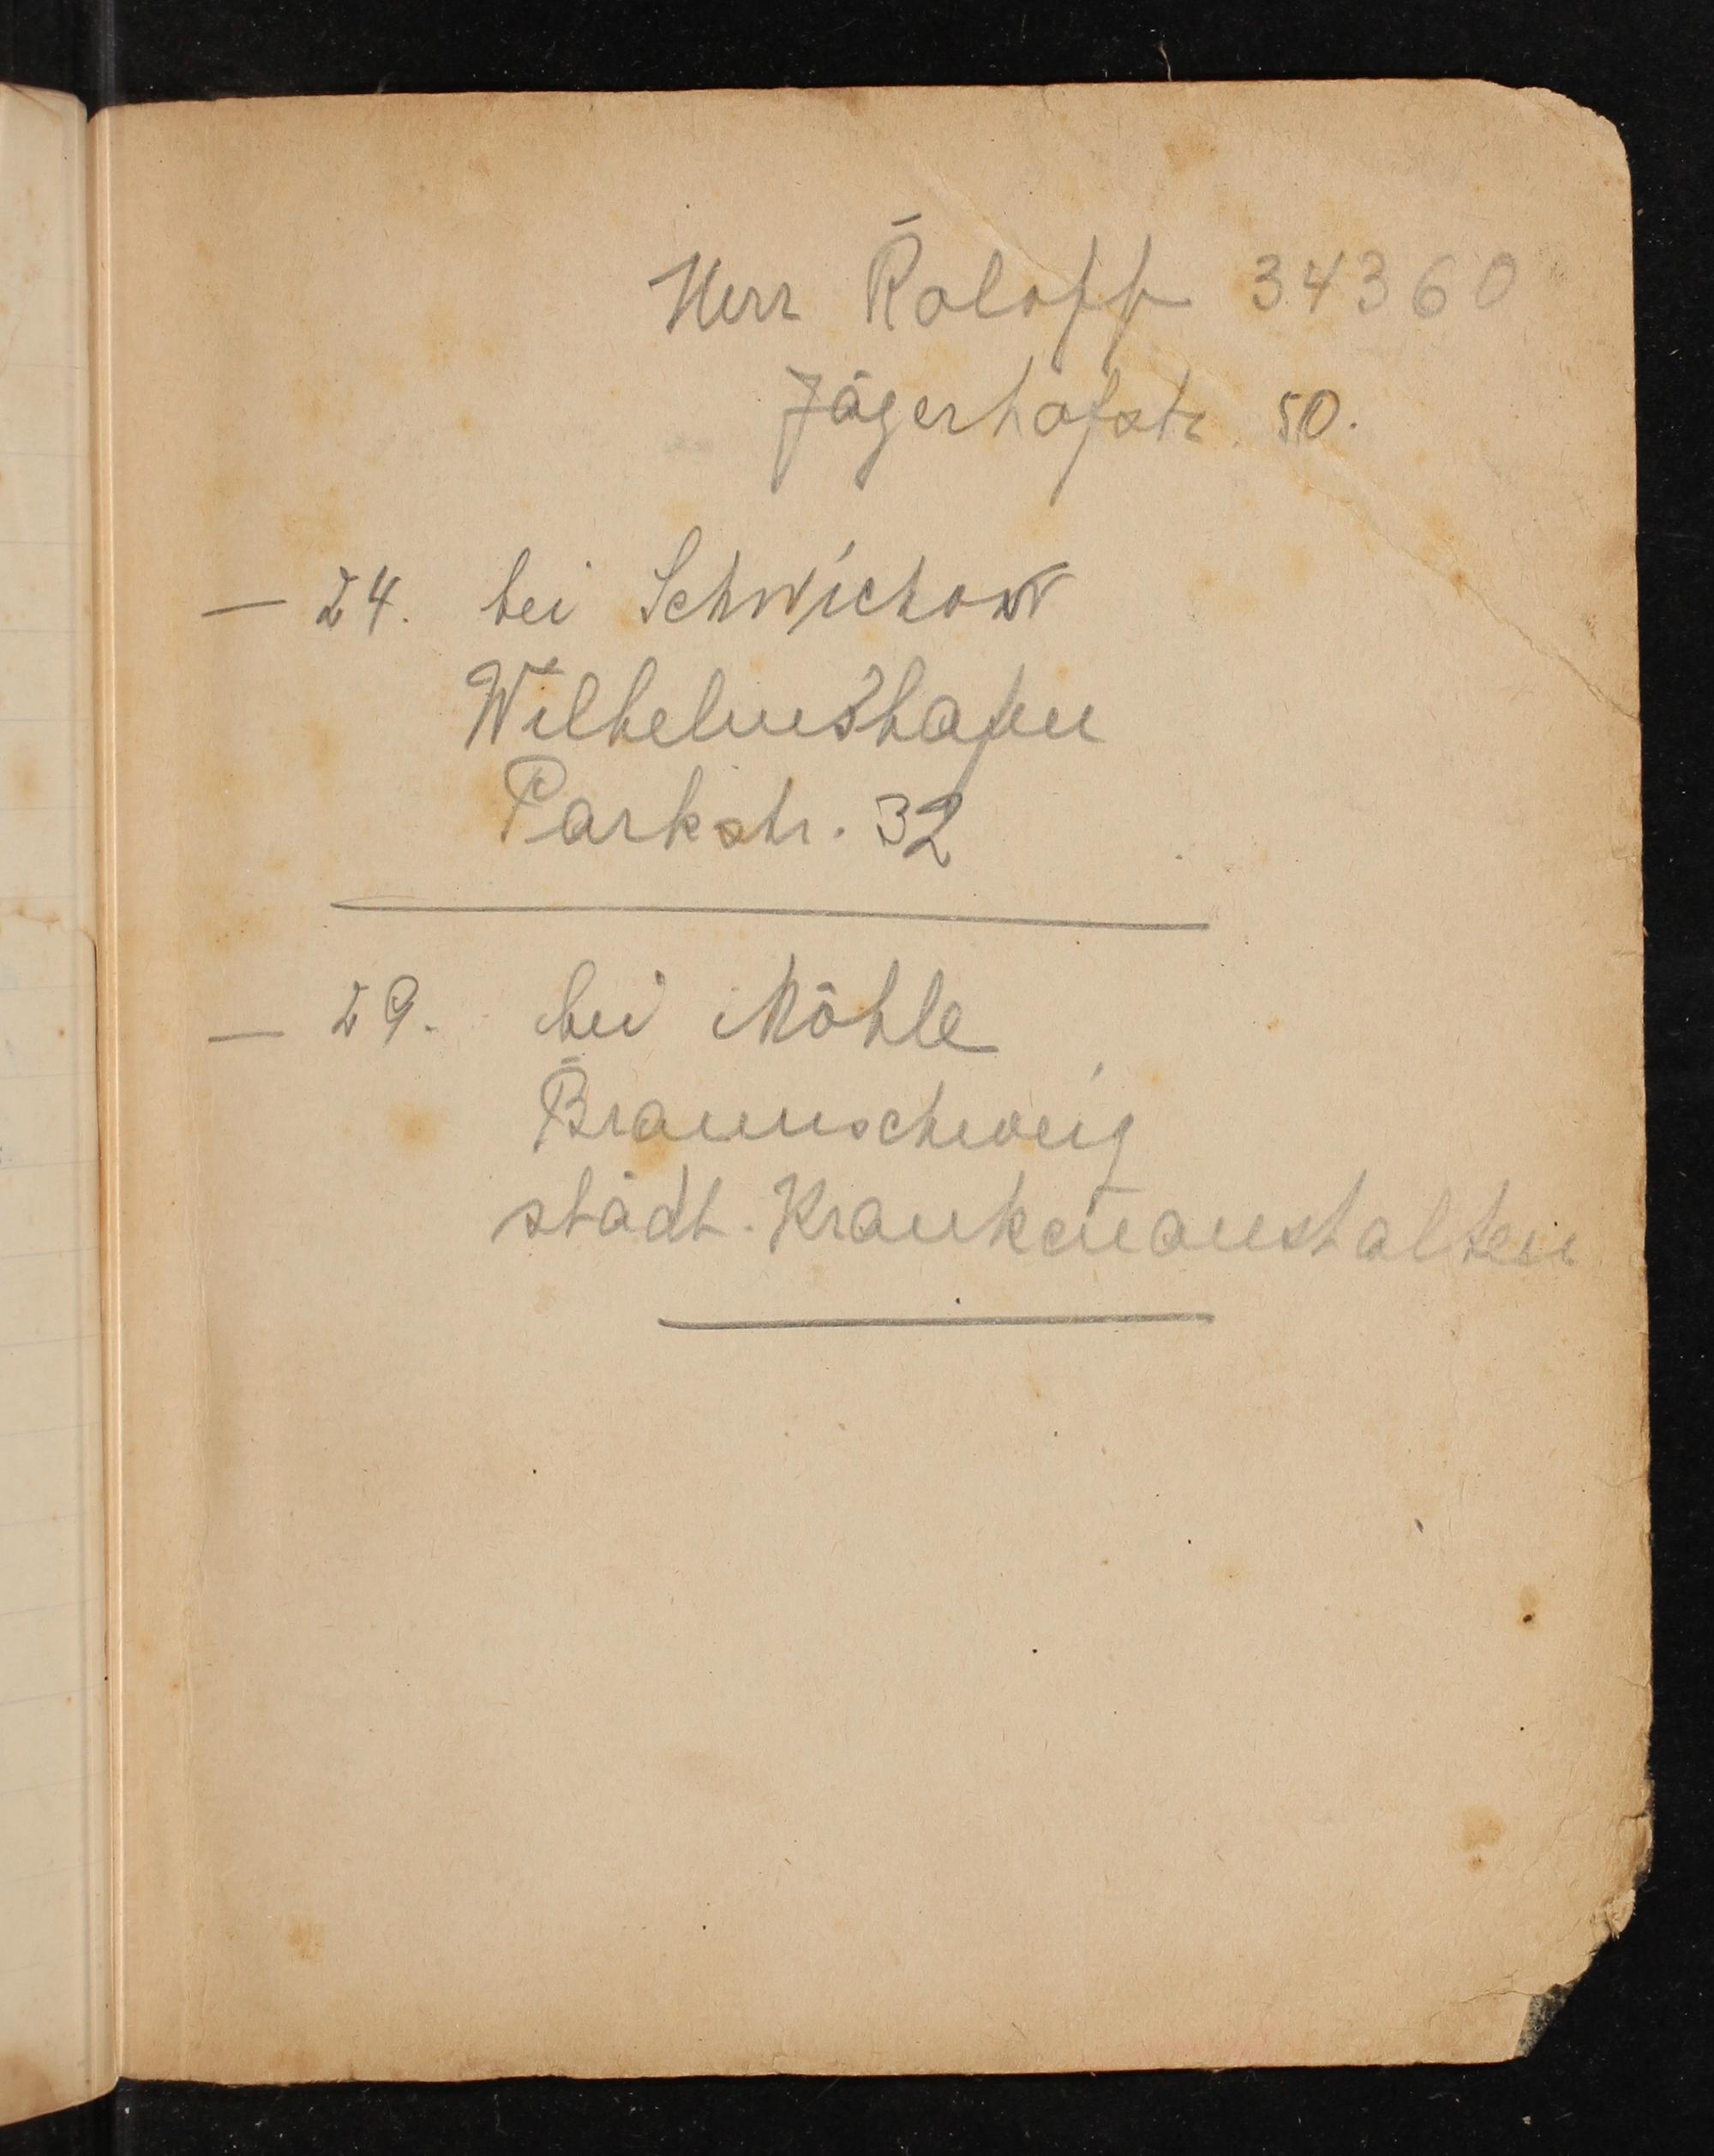 Herr Roloff 34360
Jägerhofstr. 50.
— 24. bei Schwichow
Wilhelmshafen
Parkstr. 32
— 29. bei Möhle
Braunschweig
städt. Krankenanstalten